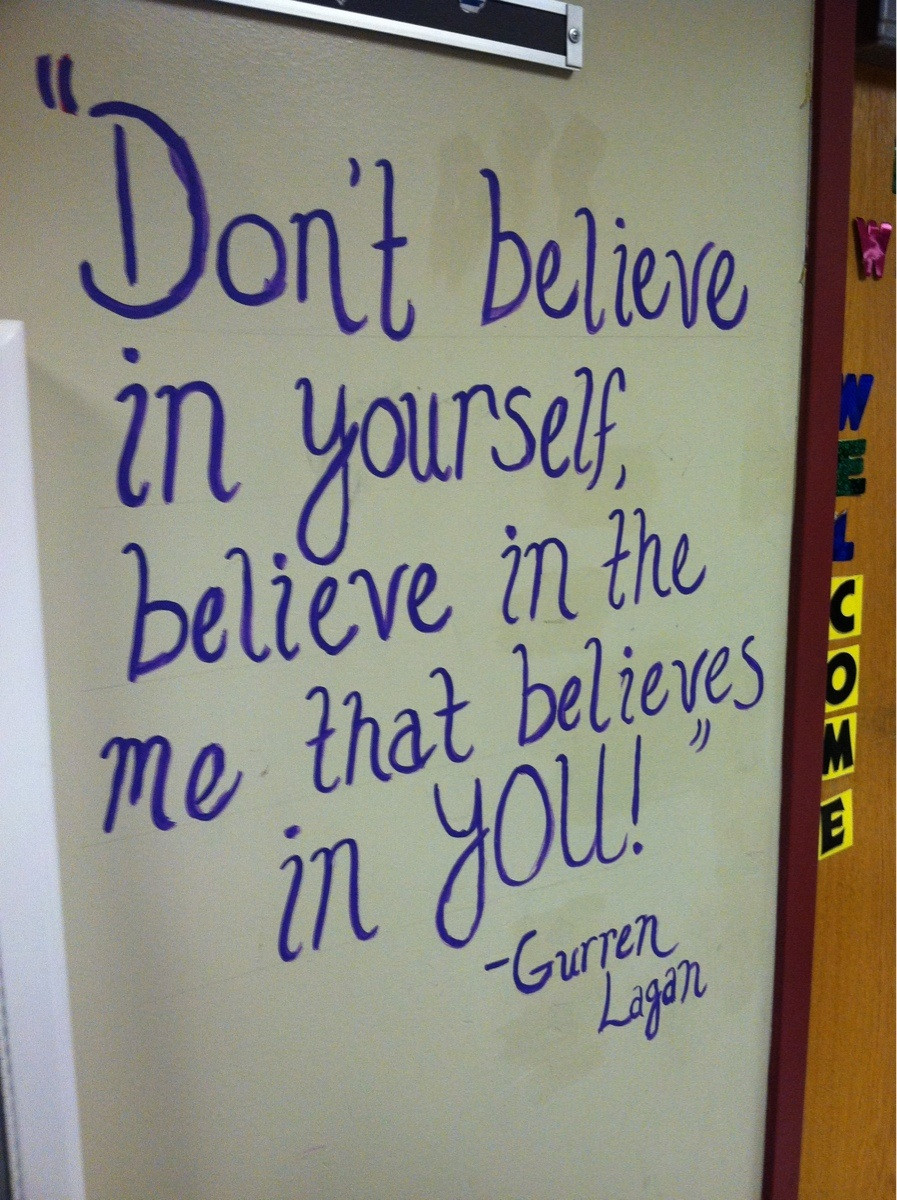 "Don't believe
in yourself,
believe in the
me that believes
in YOU!"
-Gurren
Lagan
W
WELCOME